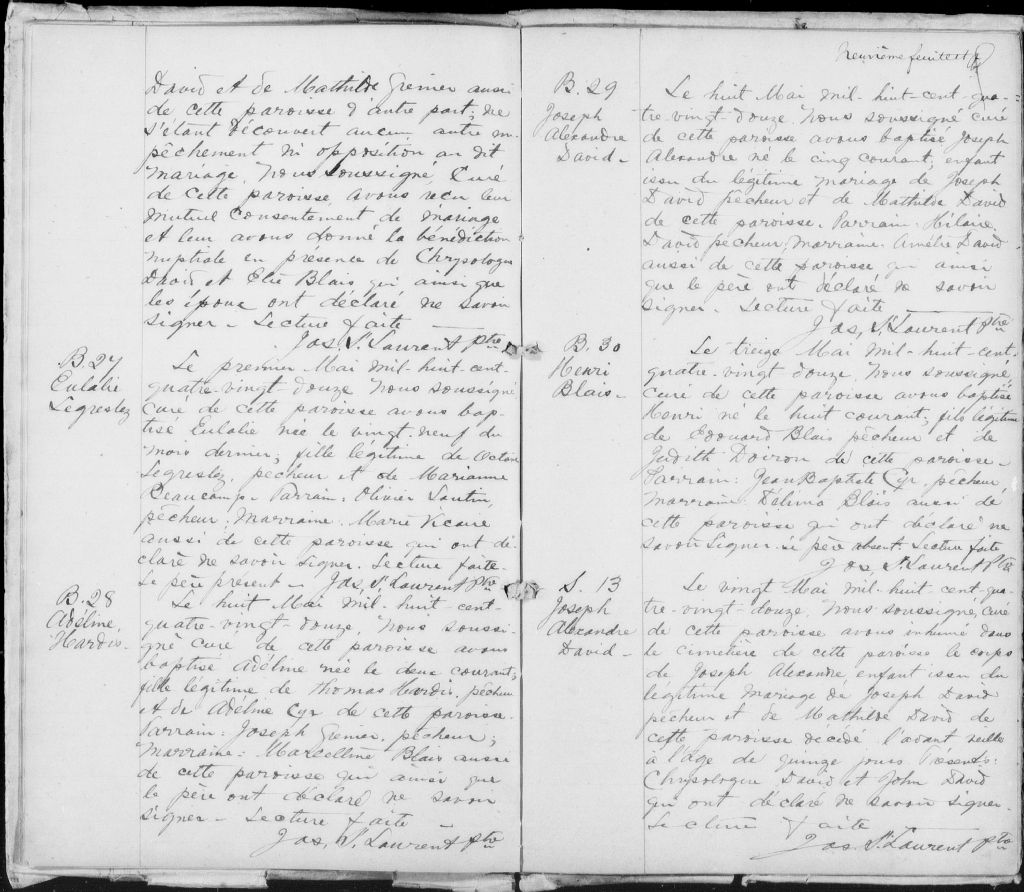 David et de Mathilde Grenier aussi
de cette paroisse d'autre part; ne
s'étant découvert aucun autre em-
pêchement ni opposition au dit
mariage, Nous soussigné, Curé
de cette paroisse avons reçu leur
mutuel consentement de mariage
et leur avons donné la bénédiction
nuptiale en présence de Chrysologue
David et Elie Blais qui ainsi que
les époux ont déclaré ne savoir
signer - Lecture faite
Jos. St Laurent Ptre
B. 27
Eulalie
Legreslez
Le premier Mai mil-huit-cent-
quatre-vingt-douze Nous soussigné
curé de cette paroisse avons bap-
tisé Eulalie née le vingt-neuf du
mois dernier, fille légitime de Octave
Legreslez, pêcheur et de Marianne
Beaucamp. Parrain: Olivier
pêcheur, Marraine: Marie Vicaire
aussi de cette paroisse qui ont dé-
claré ne savoir signer. Lecture faite.
Le père présent - Jos. St Laurent Ptre
B. 28
Adéline
Hardis-
Le huit Mai mil-huit-cent-
quatre-vingt-douze, Nous soussi-
gné curé de cette paroisse avons
baptisé Adéline née le deux courant,
fille légitime de Thomas Hardis, pêcheur
et de Adéline Cyr de cette paroisse.
Parrain: Joseph Grenier, pêcheur;
Marraine: Marcelline Blais aussi
de cette paroisse qui ainsi que
le père ont déclaré ne savoir
signer - Lecture faite -
Jos. St Laurent Ptre
Neuvième feuillet
B. 29
Joseph
Alexandre
David-
Le huit Mai mil-huit-cent-qua-
tre-vingt-douze Nous soussigné curé
de cette paroisse avons baptisé Joseph
Alexandre né le cinq courant, enfant
issu du légitime mariage de Joseph
David pêcheur et de Mathilde David
de cette paroisse. Parrain: Hilaire
David pêcheur, Marraine: Amélie David
aussi de cette paroisse qui ainsi
que le père ont déclaré ne savoir
signer. Lecture faite
Jos. St Laurent Ptre
B. 30
Henri
Blais-
Le treize Mai mil-huit-cent-
quatre-vingt douze, Nous soussigné,
curé de cette paroisse avons baptisé
Henri né le huit courant; fils légitime
de Edouard Blais pêcheur et de
Judith Doiron de cette paroisse-
Parrain: Jean Baptiste Cyr, pêcheur,
Marraine: Délima Blais aussi de
cette paroisse qui ont déclaré ne
savoir signer. Le père absent. Lecture faite
Jos. St Laurent Ptre
S. 13
Joseph
Alexandre
David-
Le vingt Mai mil-huit-cent-qua-
tre-vingt-douze, Nous soussigné, curé
de cette paroisse avons inhumé dans
le cimetière de cette paroisse le corps
de Joseph Alexandre, enfant issu du
légitime Mariage de Joseph David
pêcheur et de Mathilde David de
cette paroisse décédé l'avant veille
à l'âge de quinze jours. Présents:
Chrysologue David et John David
qui ont déclaré ne savoir signer-
Lecture faite
Jos. St Laurent Ptre